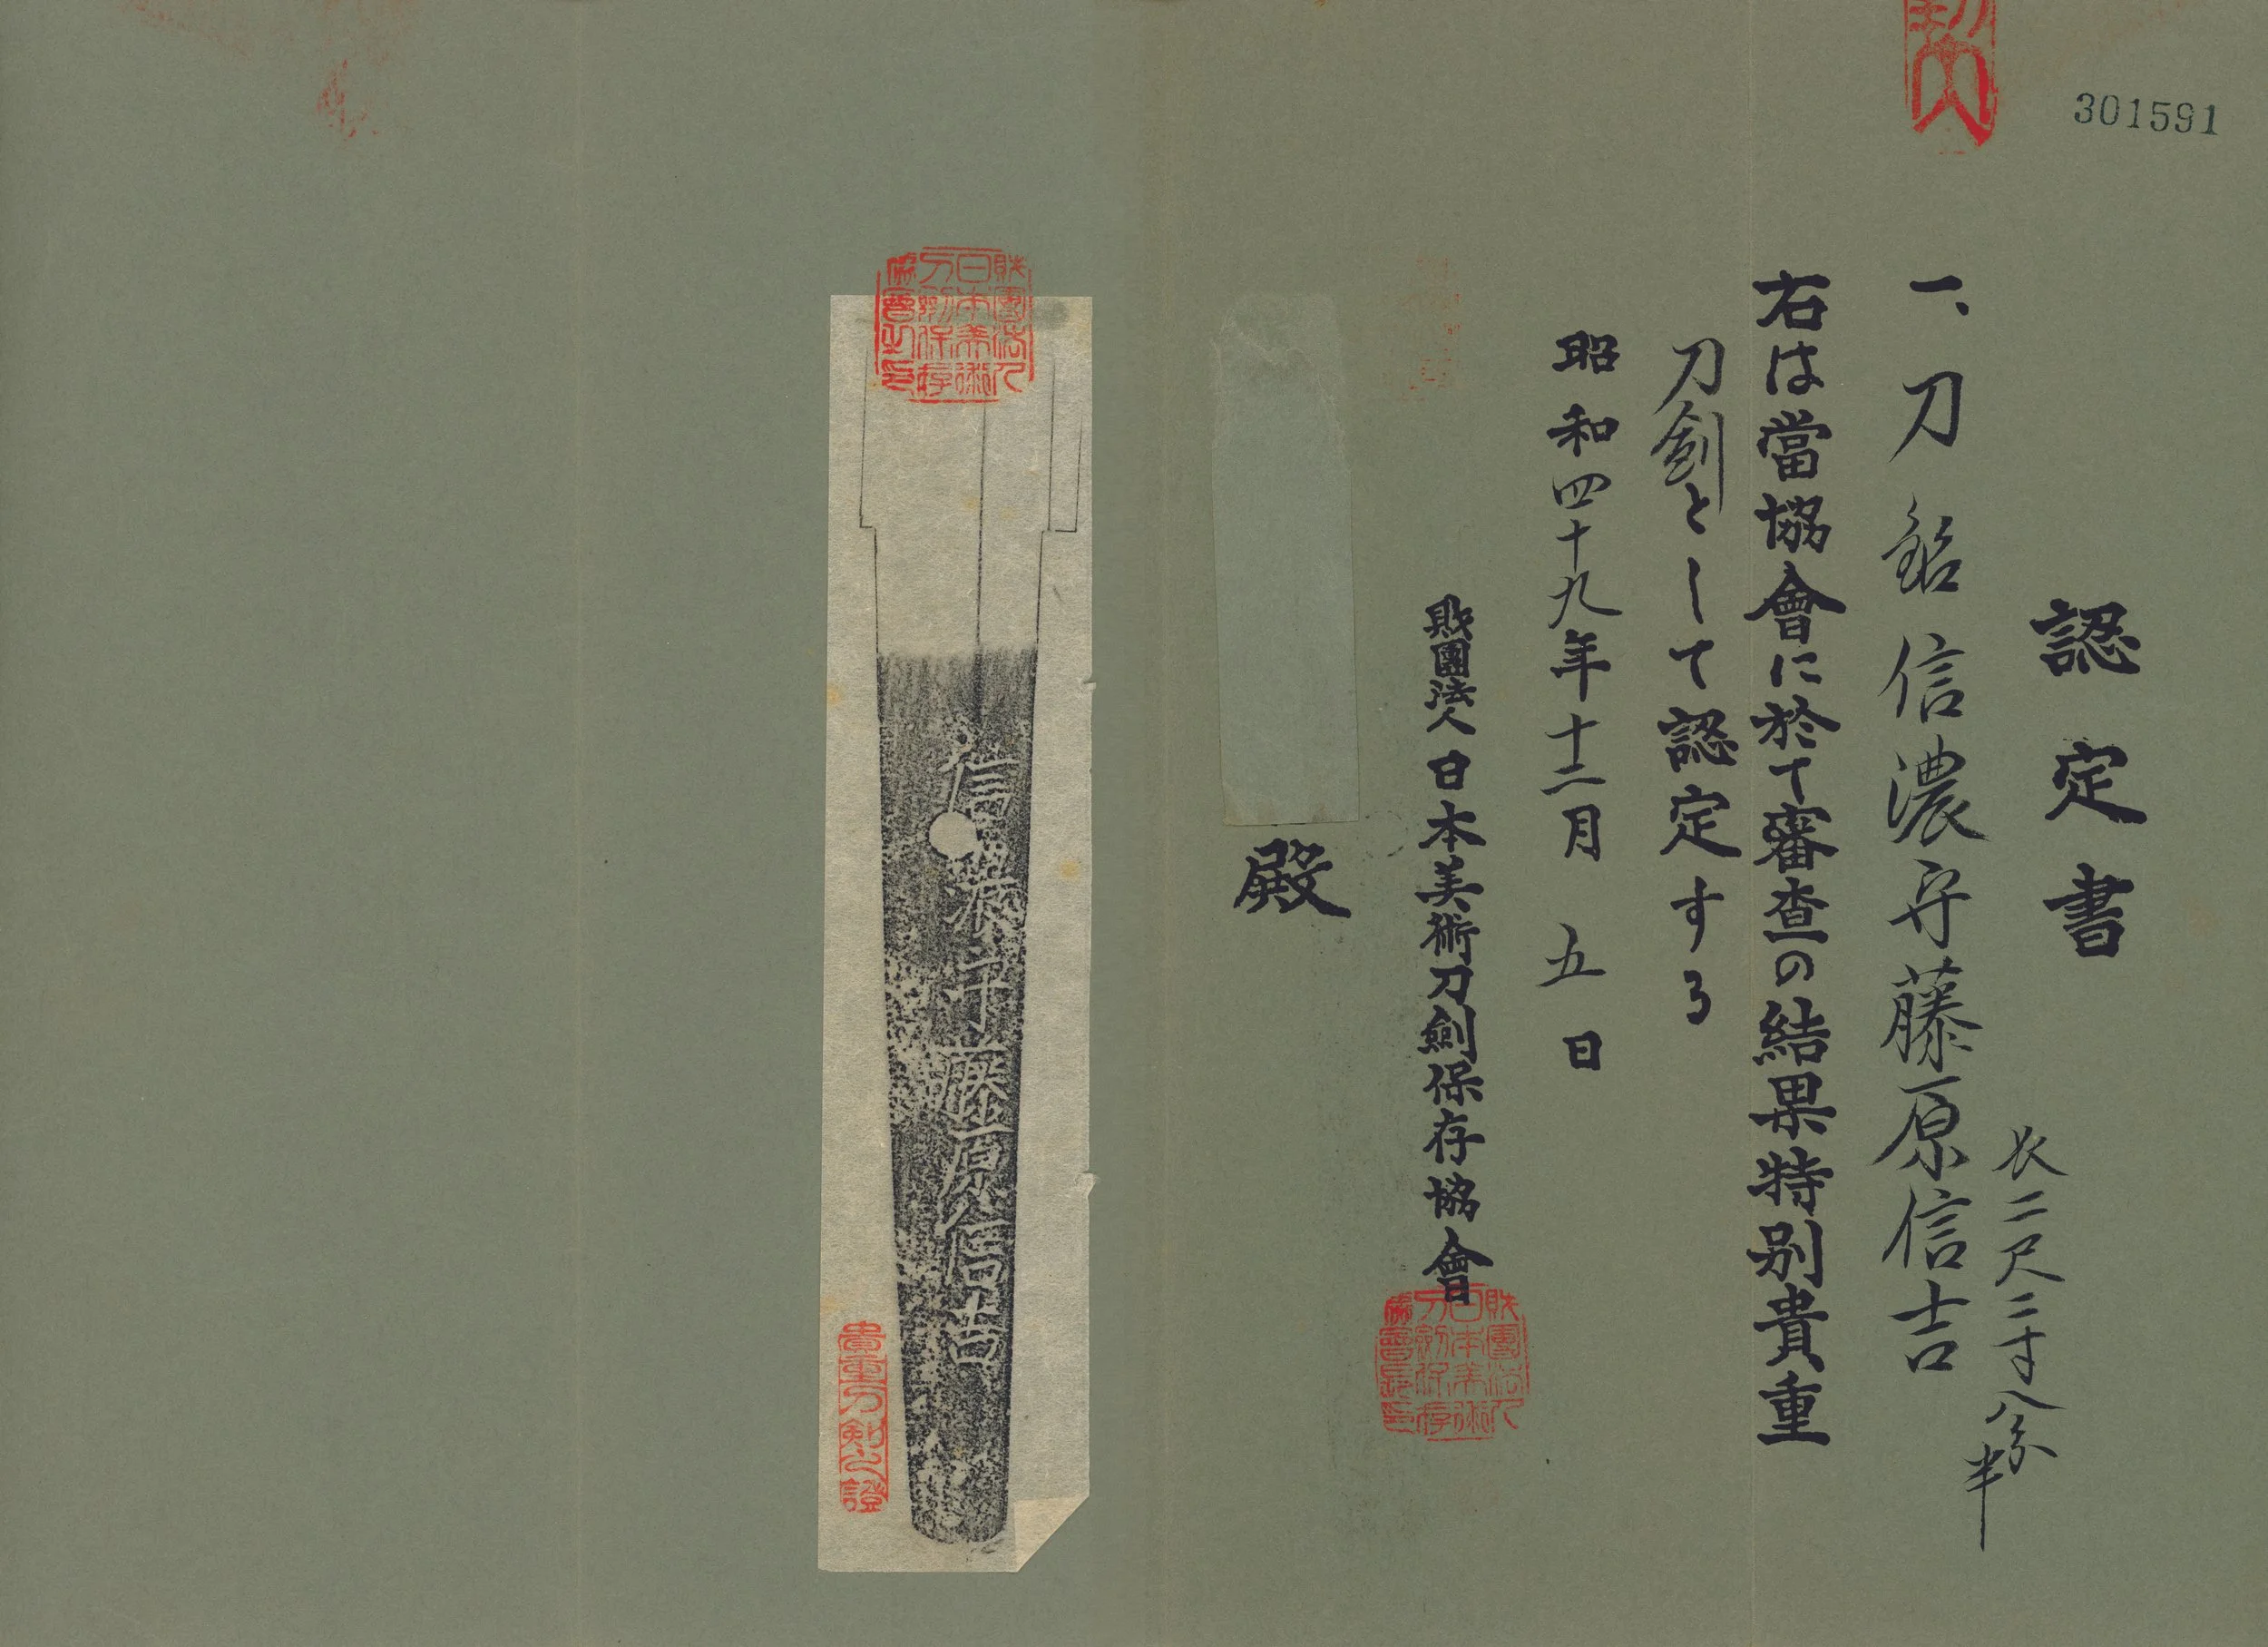 301591
認定書
一、刀 銘 信濃守藤原信吉
長二尺二寸八分半
右は當協會に於て審査の結果特別貴重
刀劍として認定する
昭和四十九年十二月 五 日
財團法人日本美術刀劍保存協會
財團法人日本美術刀剣保存協會長印
殿
財團法人日本美術刀剣保存協會之印
信濃守藤原信吉
貴重刀剣之證